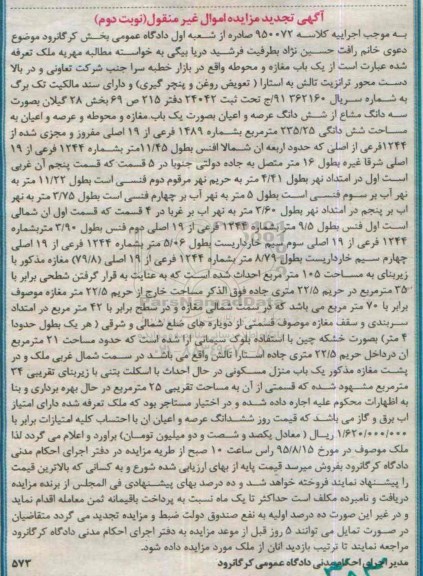 آگهی تجدید مزایده اموال غیر منقول(نوبت دوم)
به موجب اجراییه کلاسه ۹۵۰۰۷۲ صادره از شعبه اول دادگاه عمومی بخش کرگانرود موضوع
دعوی خانم رافت حسین نژاد بطرفیت فرشید دریا بیگی به خواسته مطالبه مهریه ملک تعرفه
شده عبارت است از یک باب مغازه و محوطه واقع در بازار خطبه سرا جنب شرکت تعاونی و در بالا
دست محور ترانزیت تالش به استارا ( تعویض روغن و پنچر گیری) و دارای سند مالکیت تک برگ
به شماره سریال ۳۶۲۱۶۰ ۹۱/ج تحت ثبت ۲۴۰۴۲ دفتر ۲۱۵ ص ۶۹ بخش ۲۸ گیلان بصورت
سه دانگ مشاع از شش دانگ عرصه و اعیان بصورت یک باب مغازه و محوطه و عرصه و اعیان به
مساحت شش دانگی ۲۳۵/۲۵ مترمربع بشماره ۱۴۸۹ فرعی از ۱۹ اصلی مفروز و مجزی شده از
۱۲۴۴فرعی از اصلی که حدود اربعه ان شمالا افنس بطول ۱۱/۴۵متر بشماره ۱۲۴۴ فرعی از ۱۹
اصلی شرقا غیره بطول ۱۶ متر متصل به جاده دولتی جنوبا در ۵ قسمت که قسمت پنجم آن غربی
است اول در امتداد نهر بطول ۴/۴۱ متر به حریم نهر مرقوم دوم فنسی است بطول ۱۱/۲۲ متر به
نهر آب بر سوم فنسی است بطول ۵ متر به نهر آب بر چهارم فنسی است بطول ۳/۷۵ متر به نهر
اب بر پنجم در امتداد نهر بطول ۳/۶۰ متر به نهر اب بر غربا در ۴ قسمت که قسمت اول ان شمالی
است اول فنس بطول ۹/۵ متر بشماره ۱۲۴۴فرعی از ۱۹ اصلی دوم فنس بطول ۳/۹۰ متربشماره
۱۲۴۴ فرعی از ۱۹ اصلی سوم سیم خارداریست بطول ۵/۰۶ متر بشماره ۱۲۴۴ فرعی از ۱۹ اصلی
چهارم سیم خارداریست بطول ۸/۷۹ متر بشماره ۱۲۴۴ فرعی از ۱۹ اصلی (۷۹/۸) مغازه مذکور با
زیربنای به مساحت ۱۰۵ متر مربع احداث شده است که به عنایت به قرار گرفتن شطحی برابر با
۳۵ مترمربع در حریم ۲۲/۵ متری جاده فوق الذکر مساحت خارج از حریم ۲۲/۵ متر مغازه موصوف
برابر با ۷۰ متر مربع می باشد که در سمت شمالی مغازه و در سطح برابر با ۴۲ متر مربع در امتداد
سربندی و سقف مغازه موصوف قسمتی از دوباره های ضلع شمالی و شرقی ( هر یک بطول حدودا
۴ متر) بصورت خشکه چین با استفاده بلوک سیمانی ازا شده است که حدود مساحت ۲۱ مترمربع
ان درداخل حریم ۲۲/۵ متری جاده استارا تالش واقع می باشد در سمت شمال غربی ملک و در
پشت مغازه مذکور یک باب منزل مسکونی در حال احداث با اسکلت بتنی با زیربنای تقریبی ۳۴
مترمربع مشهود شده که قسمتی از آن به مساحت تقریبی ۲۵ مترمربع در حال بهره برداری و بنا
به اظهارات محکوم علیه اجاره داده شده و در اختیار مستاجر بود که ملک تعرفه شده دارای امتیاز
اب برق و گاز می باشد که قیمت روز ششدانگ عرصه و اعیان ان با احتساب کلیه امتیازات برابر با
۱/۶۲۰/۰۰۰/۰۰۰ ریال ( معادل یکصد و شصت و دو میلیون تومان) براورد و اعلام می گردد لذا
ملک موصوف در مورخ ۹۵/۸/۱۵ راس ساعت ۱۰ صبح از طریه مزایده در دفتر اجرای احکام مدنی
دادگاه کرگانرود بفروش میرسد قیمت پایه از بهای ارزیابی شده شورع و به کسانی که بالاترین قیمت
را پیشنهاد نمایند فروخته خواهد شد و ده درصد بهای پیشنهادی فی المجلس از برنده مزایده
دریافت و نامبرده مکلف است حداکثر تا یک ماه نسبت به پرداخت باقیمانه ثمن معامله اقدام نماید
و در غیر این صورت ده درصد اولیه به نفع صندوق دولت ضبط و مزایده تجدید می گردد متقاضیان
در صورت تمایل می توانند ۵ روز قبل از موعد مزایده به دفتر اجرای احکام مدنی دادگاه کرگانرود
مراجعه نمایند تا ترتیب بازدید انان از ملک مورد مزایده داده شود.
مدیر اجرای احکام مدنی دادگاه عمومی کرگانرود ۵۷۳